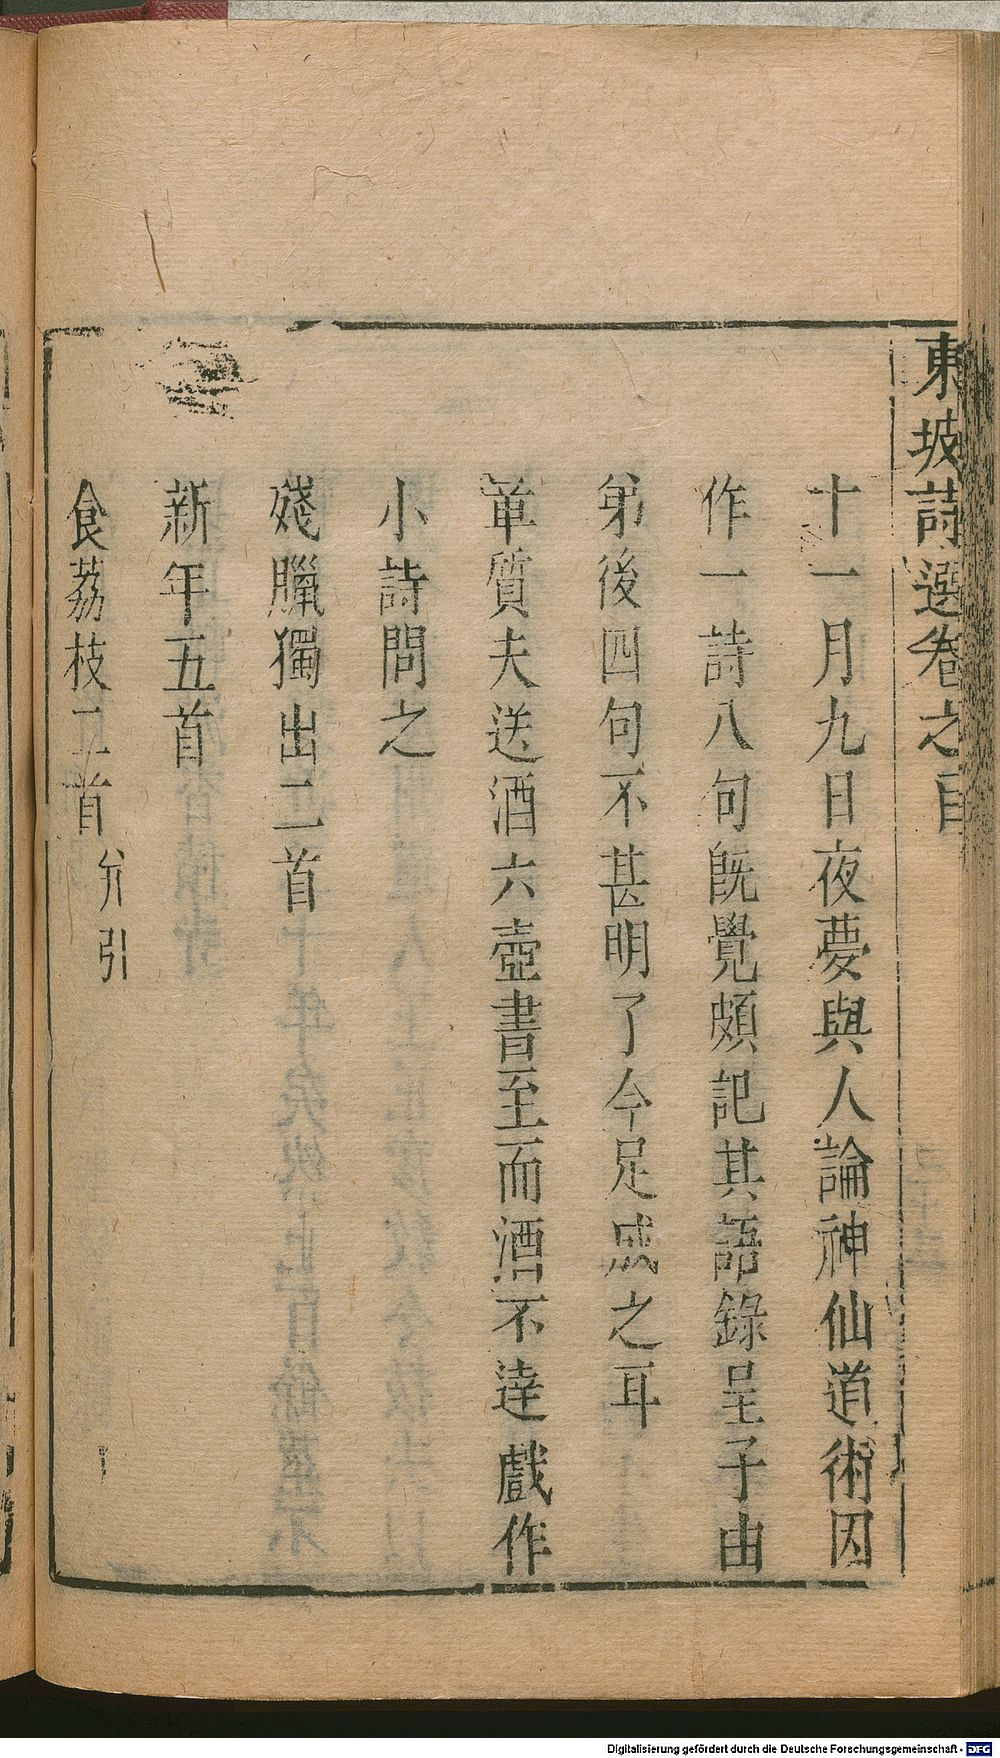 東坡詩選卷之目
十一月九日夜夢與人論神仙道術因
作一詩八句旣覺頗記其語錄呈子由
弟後四句不甚明了今足成之耳
章質夫送酒六壺書至而酒不達戲作
小詩問之
殘臘獨出二首
新年五首
食荔枝二首 幷引
Digitalisierung gefördert durch die Deutsche Forschungsgemeinschaft - DFG